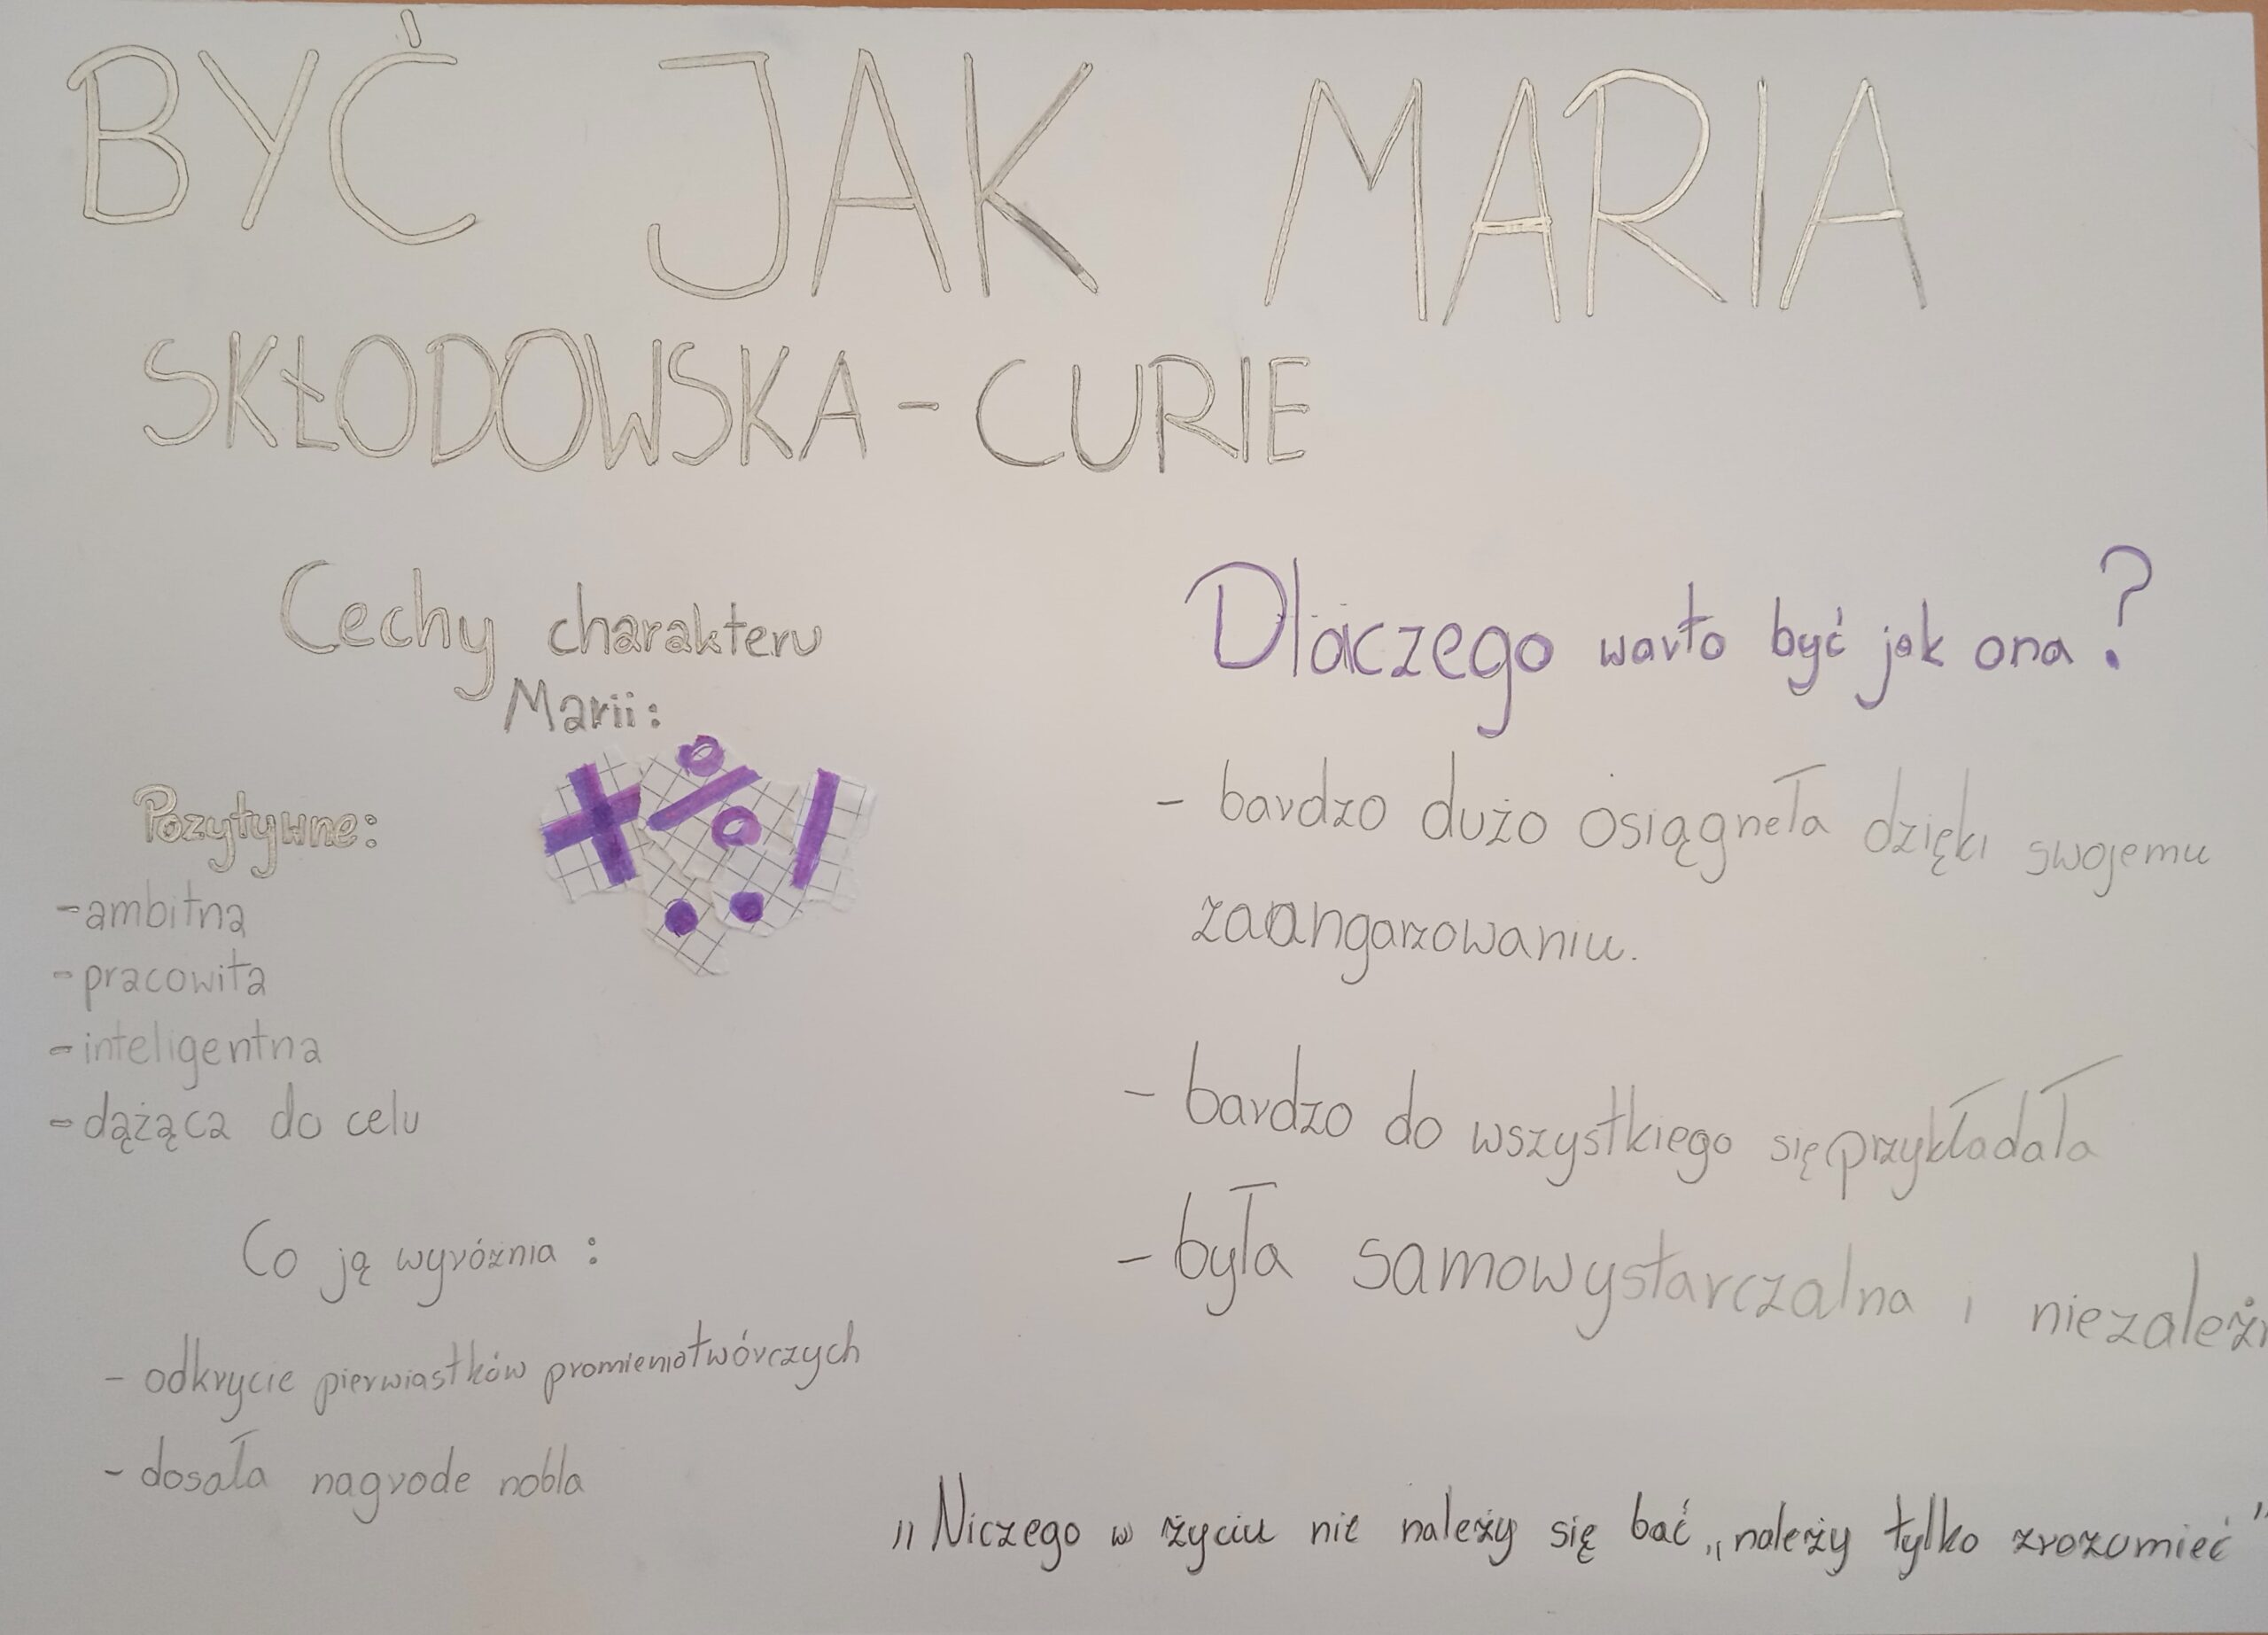 BYĆ JAK MARIA
SKŁODOWSKA-CURIE
Cechy charakteru
Marii:
+ % !
: 
Pozytywne:
-ambitna
-pracowita
-inteligentna
-dążąca do celu
Co ją wyróżnia :
- odkrycie pierwiastków promieniotwórczych
- dosała nagrode nobla
Dlaczego warto być jak ona?
- bardzo dużo osiągneła dzięki swojemu
zaangarzowaniu.
- bardzo do wszystkiego się przykładała
- była samowystarczalna i
„Niczego w życiu nie należy się bać „należy tylko zrozumieć"